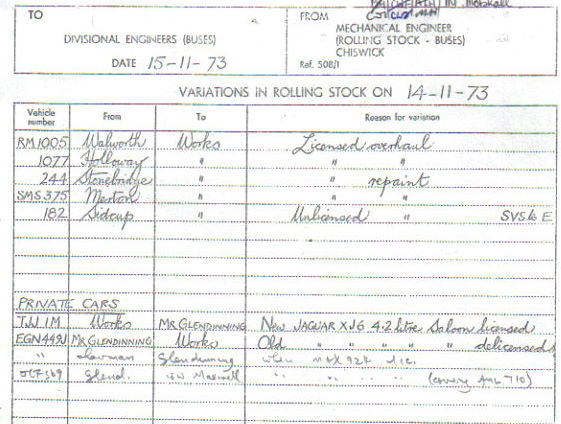 TO
DIVISIONAL ENGINEERS (BUSES)
DATE 15-11-73
FROM
MECHANICAL ENGINEER
(ROLLING STOCK - BUSES)
CHISWICK
Ref. 508/1
VARIATIONS IN ROLLING STOCK ON 14-11-73
Vehicle number From To Reason for variation
RM1005 Walworth Works Licensed overhaul
1077 Holloway " " "
244 Stonebridge " " repaint
SMS375 Merton " " "
182 Sidcup " Unlicensed " SVS to E
PRIVATE CARS
TJJ 1M Works MR GLENDINNING New JAGUAR XJ6 4.2 litre Saloon licensed
EGN449J MR GLENDINNING Works Old " " " " delicensed
" Glendinning when
569 Glend. Maxwell " " " "